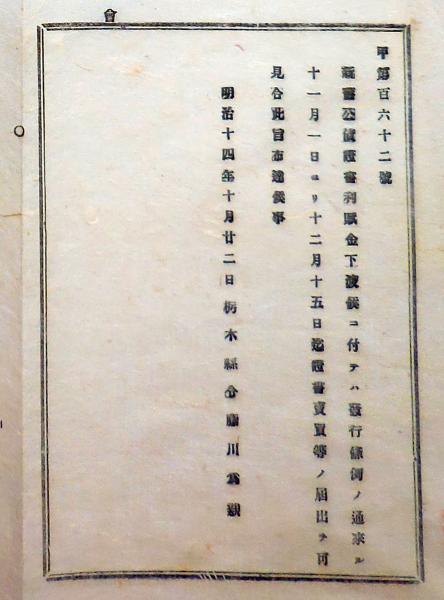 會
甲第百六十二號
新舊公債證書利賦金下渡候ニ付テハ發行條例ノ通來ル
十一月一日ヨリ十二月十五日迄證書賣買等ノ届出ヲ可
見合此旨布達候事
明治十四年十月廿二日栃木縣令藤川爲親